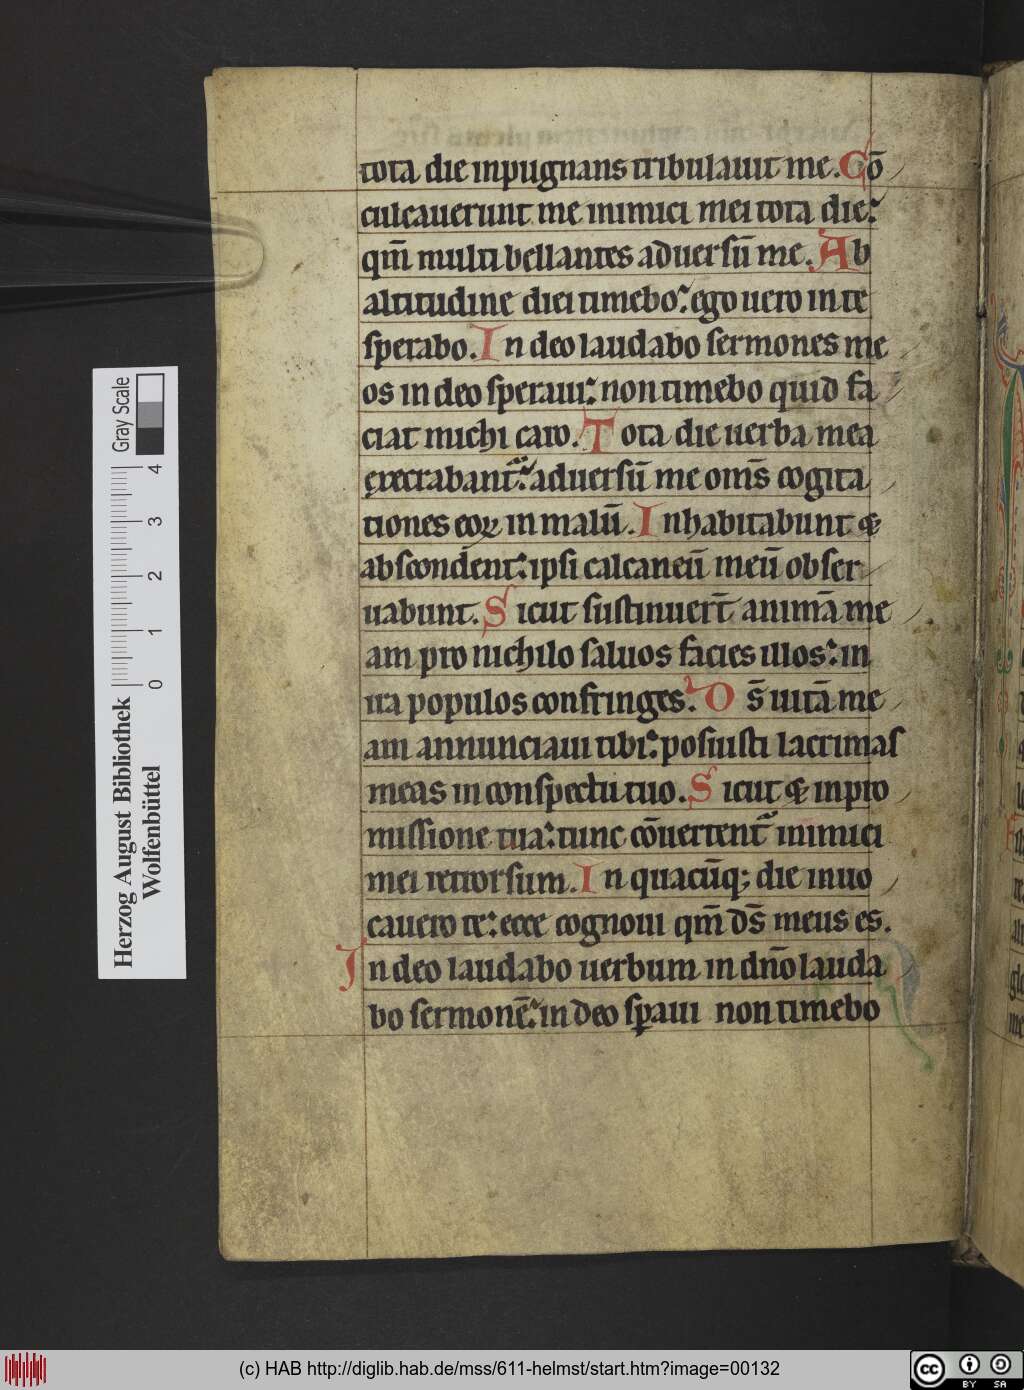 tota die inpugnans tribulauit me. Cō
culcauerunt me inimici mei tota die:
qm̄ multi bellantes aduersū me. Ab
altitudine diei timebo: ego uero in te
sperabo. In deo laudabo sermones me
os in deo speraui: non timebo quid fa
ciat michi caro. Tota die uerba mea
execrabant᷑: aduersū me om̄s cogita
tiones eoꝝ in malū. Inhabitabunt &
abscondent: ipsi calcaneū meū obser
uabunt. Sicut sustinuer̄t animā me
am pro nichilo saluos facies illos: in
ira populos confringes. D̄s uitā me
am annunciaui tibi: posuisti lacrimas
meas in conspectu tuo. Sicut & in pro
missione tua: tunc cōuertent᷑ inimici
mei retrorsum. In quacūq; die inuo
cauero te: ecce cognoui qm̄ ds̄ meus es.
In deo laudabo uerbum in dn̄o lauda
bo sermonē: in deo sꝑaui non timebo
Herzog August Bibliothek
Wolfenbüttel
0 1 2 3 4
Gray Scale
(c) HAB http://diglib.hab.de/mss/611-helmst/start.htm?image=00132
cc BY SA